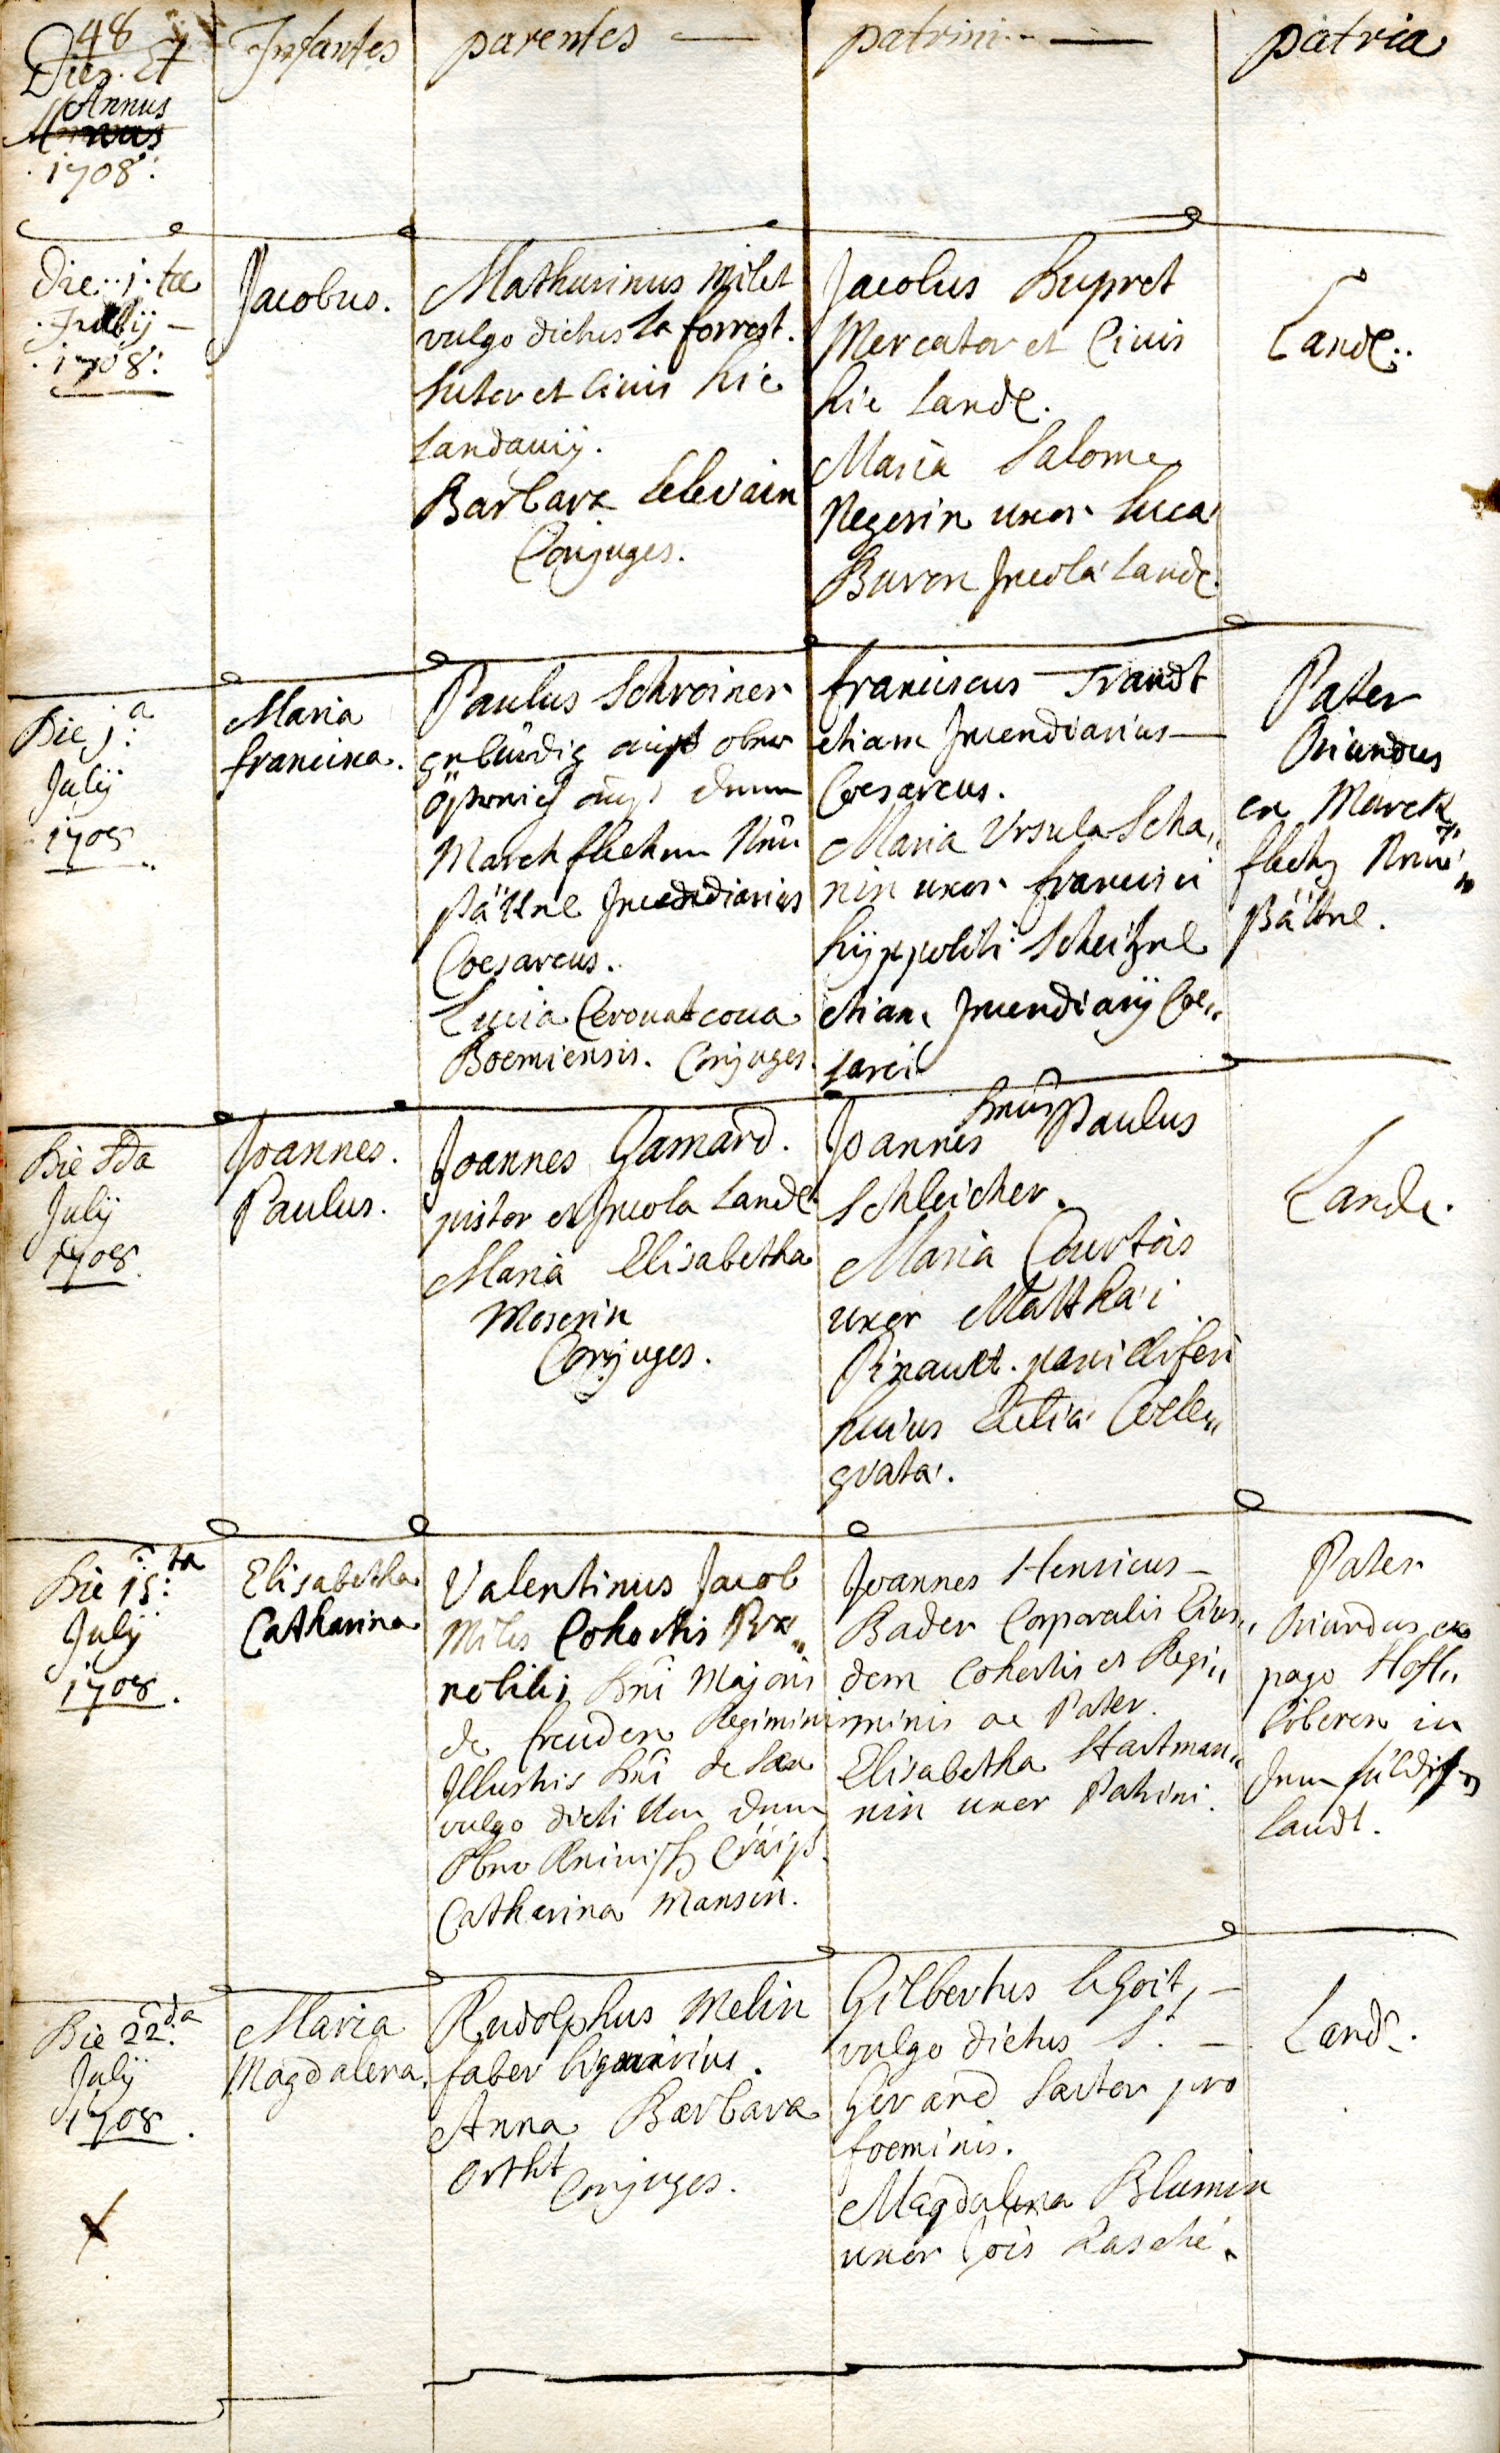 48
Dies. Et
Annus
1708:
Infantes
parentes
patrini
patria
Die 1. ta
Julij
1708:
Jacobus.
Mathurinus Milet
vulgo dictus la forrest.
Sutor et Civis hic
Landavij.
Barbara Lelevain
Conjuges.
Jacobus Dupret
Mercator et Civis
hic Landæ.
Maria Salome
Negerin uxor Lucæ
Buron Incolæ Landæ.
Landæ.
Die 1.a
July
1708
Maria
francisca.
Paulus Schroiner
gebürdig auß ober
össtreich auß dem
Marck flecken Neu
Incendiarius
Coesareus.
Lucia Cerovatcova
Boemiensis. Conjuges.
franciscus Trandt
etiam Incendiarius
Coesareus.
Maria Ursula Scha,
nin uxor francisci
hijppoliti Scheitzel
etiam Incendiarij Coe„
sarei
Pater
Oriundus
ex Marck
fleckh
Die 8da
July
1708.
Joannes.
Paulus.
Joannes Gamard.
pistor et Incola Landæ.
Maria Elisabetha
Moserin
Conjuges.
Dnus
Joannes Paulus
Schleicher.
Maria Courtois
uxor Matthæi
Pinault.
huius
Landæ.
Die 15:ta
July
1708.
Elisabetha
Catharina
Valentinus Jacob
Miles Cohortis Præ„
nobilis Dni Majoris
de freuden Regimini
Illustris Dni de
vulgo dicti Von dem
Ober Reinisch Craiß.
Catharina Mansin.
Joannes Henricus
Bader Corporalis Eius„
dem Cohortis et Regi„
minis ac Pater.
Elisabetha Hartman„
nin uxor Patrini.
Pater
Oriundus ex
pago Hoff„
biberen in
dem fuldisch
landt.
Die 22.da
July
1708.
Maria
Magdalena.
Rudolphus Melin
faber lignarius.
Anna Barbara
Ortht
Conjuges.
Gilbertus
vulgo dictus St.
Gerand Sartor pro
foeminis.
Magdalena Blumin
uxor Jois Lasché.
Landæ.